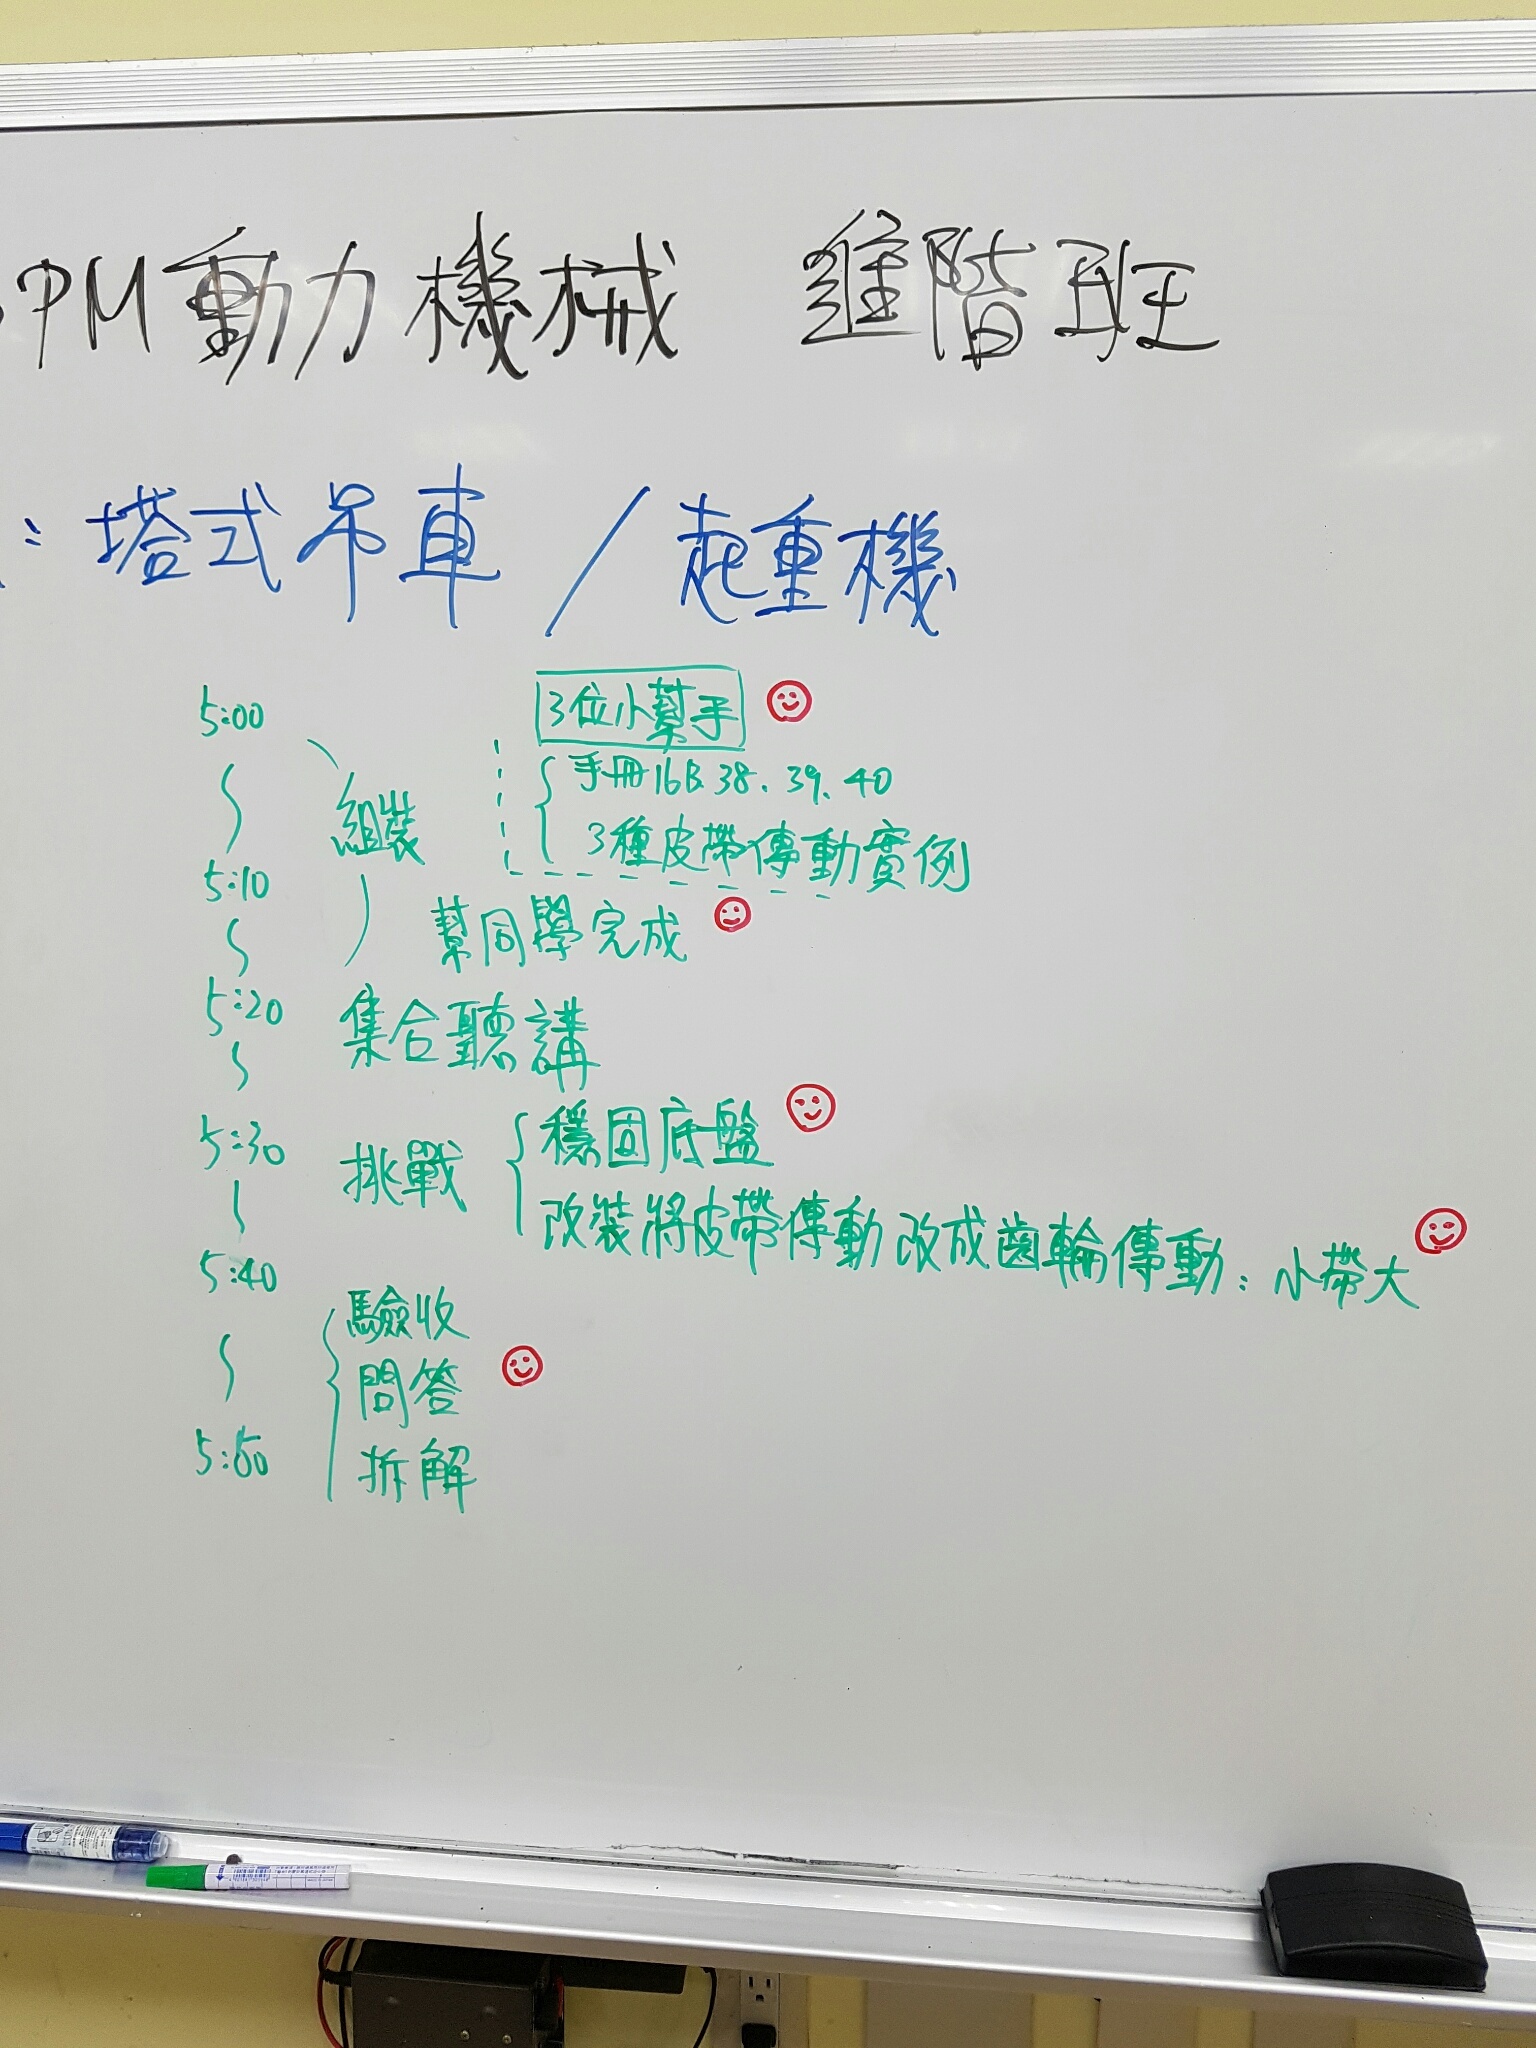 PM動力機械 進階班
：塔式吊車 / 起重機
5:00
3位小幫手
組裝
手冊16B.38.39.40
3種皮帶傳動實例
5:10
幫同學完成
5:20
集合聽講
5:30
挑戰
穩固底盤
改裝將皮帶傳動改成齒輪傳動：小帶大
5:40
驗收
問答
拆解
5:50